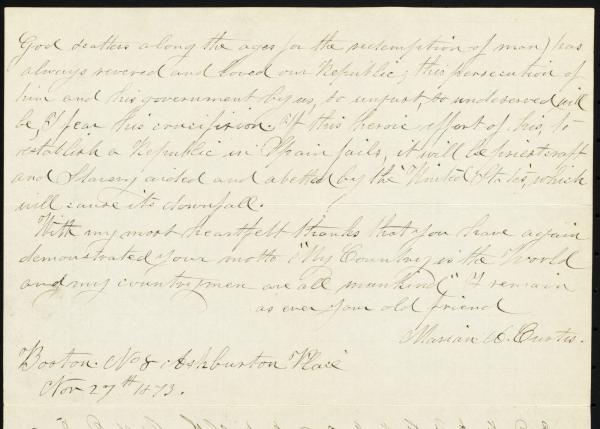 God scatters along the ages for the redemption of man) has
always revered and loved our Republic; this persecution of
him and his government by us, so unjust, so undeserved will
be, I fear his crucifixion. If this heroic effort of his, to
establish a Republic in Spain fails, it will be priestcraft
and Slavery aided and abetted by the "United States", which
will cause its downfall.
With my most heartfelt thanks that you have again
demonstrated your motto ("My Country is the World
and my countrymen are all mankind,") I remain
as ever your old friend
Marian A. Curtis.
Boston. No 8 Ashburton Place
Nov 27th 1873.